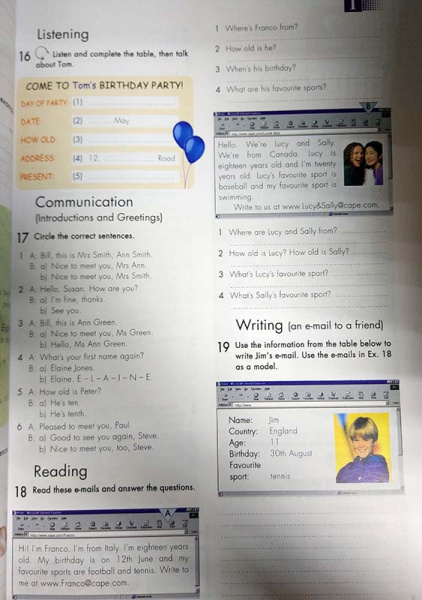 Listening
16 Listen and complete the table, then talk
about Tom.
COME TO Tom's BIRTHDAY PARTY!
DAY OF PARTY: (1)
DATE: (2) May
HOW OLD: (3)
ADDRESS: (4) 12, Road
PRESENT: (5)
Communication
(Introductions and Greetings)
17 Circle the correct sentences.
1 A: Bill, this is Mrs Smith, Ann Smith.
B: a) Nice to meet you, Mrs Ann.
b) Nice to meet you, Mrs Smith.
2 A: Hello, Susan. How are you?
B: a) I'm fine, thanks.
b) See you.
3 A: Bill, this is Ann Green.
B: a) Nice to meet you, Ms Green.
b) Hello, Ms Ann Green.
4 A: What's your first name again?
B: a) Elaine Jones.
b) Elaine. E – L – A – I – N – E.
5 A: How old is Peter?
B: a) He's ten.
b) He's tenth.
6 A: Pleased to meet you, Paul.
B: a) Good to see you again, Steve.
b) Nice to meet you, too, Steve.
Reading
18 Read these e-mails and answer the questions.
A
Hi! I'm Franco. I'm from Italy. I'm eighteen years
old. My birthday is on 12th June and my
favourite sports are football and tennis. Write to
me at www.Franco@cape.com.
1
1 Where's Franco from?
2 How old is he?
3 When's his birthday?
4 What are his favourite sports?
B
Hello. We're Lucy and Sally.
We're from Canada. Lucy is
eighteen years old and I'm twenty
years old. Lucy's favourite sport is
baseball and my favourite sport is
swimming.
Write to us at www.Lucy&Sally@cape.com.
1 Where are Lucy and Sally from?
2 How old is Lucy? How old is Sally?
3 What's Lucy's favourite sport?
4 What's Sally's favourite sport?
Writing (an e-mail to a friend)
19 Use the information from the table below to
write Jim's e-mail. Use the e-mails in Ex. 18
as a model.
Name: Jim
Country: England
Age: 11
Birthday: 30th August
Favourite
sport: tennis